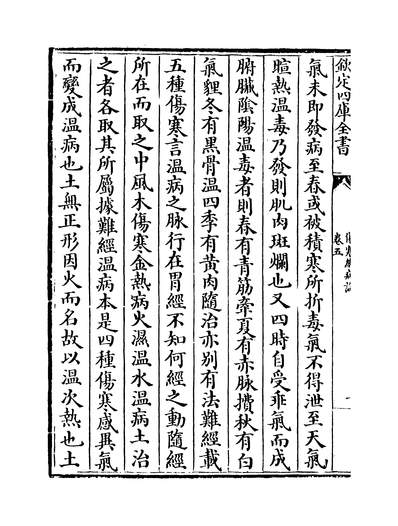 欽定四庫全書
卷五
氣未即發病至春或被積寒所折毒氣不得泄至天氣
暄熱温毒乃發則肌肉斑爛也又四時自受乖氣而成
腑臟陰陽温毒者則春有青筋牽夏有赤脉攢秋有白
氣貍冬有黒骨温四季有黄肉隨治亦别有法難經載
五種傷寒言温病之脉行在胃經不知何經之動隨經
所在而取之中風木傷寒金熱病火濕温水温病土治
之者各取其所屬據難經温病本是四種傷寒感異氣
而變成温病也土無正形因火而名故以温次熱也土